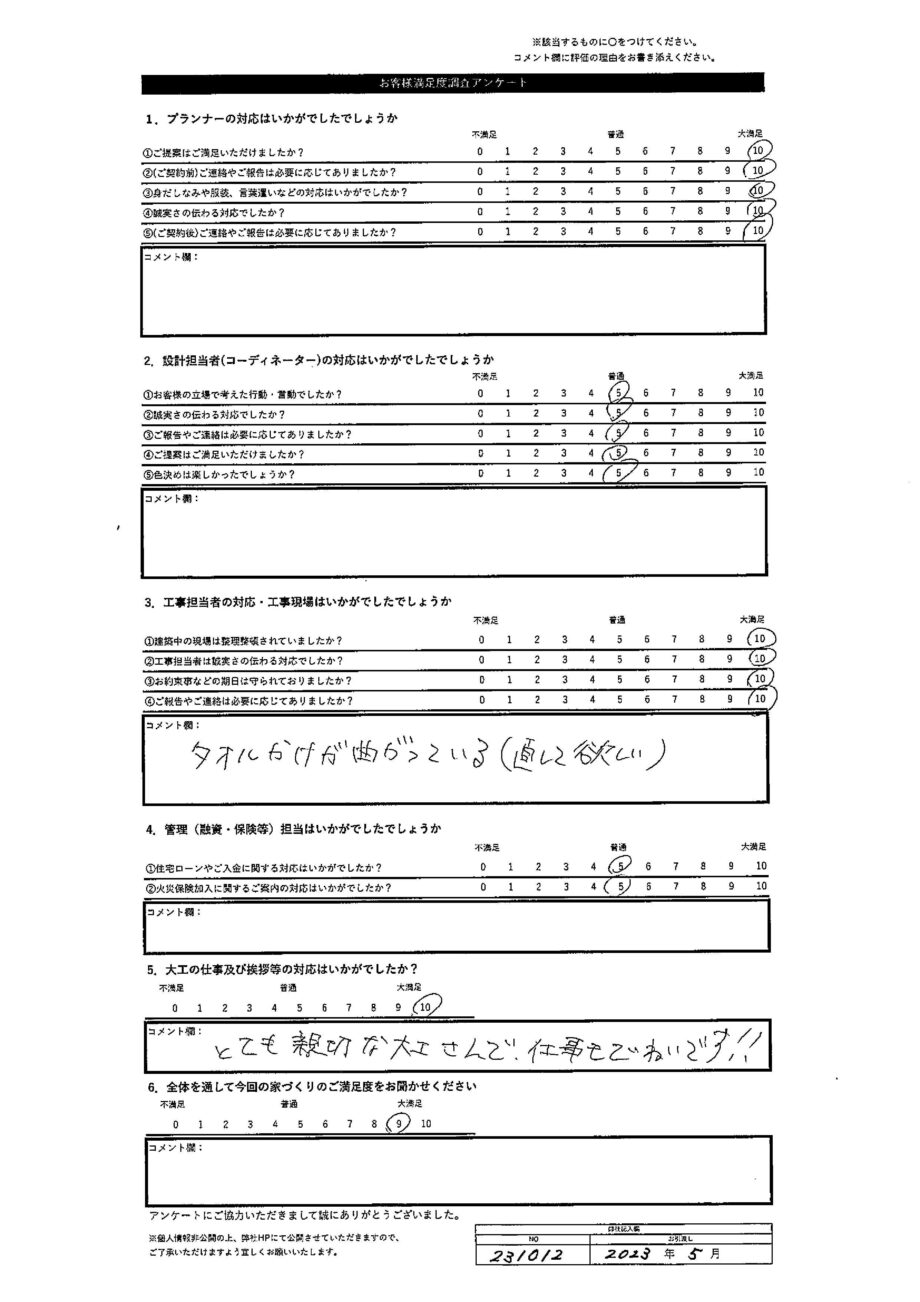 ※該当するものに〇をつけてください。
コメント欄に評価の理由をお書き添えください。
お客様満足度調査アンケート
1．プランナーの対応はいかがでしたでしょうか
不満足 普通 大満足
①ご提案はご満足いただけましたか？ 0 1 2 3 4 5 6 7 8 9 10
②(ご契約前)ご連絡やご報告は必要に応じてありましたか？ 0 1 2 3 4 5 6 7 8 9 10
③身だしなみや服装、言葉遣いなどの対応はいかがでしたか？ 0 1 2 3 4 5 6 7 8 9 10
④誠実さの伝わる対応でしたか？ 0 1 2 3 4 5 6 7 8 9 10
⑤(ご契約後)ご連絡やご報告は必要に応じてありましたか？ 0 1 2 3 4 5 6 7 8 9 10
コメント欄：
2．設計担当者(コーディネーター)の対応はいかがでしたでしょうか
不満足 普通 大満足
①お客様の立場で考えた行動・言動でしたか？ 0 1 2 3 4 5 6 7 8 9 10
②誠実さの伝わる対応でしたか？ 0 1 2 3 4 5 6 7 8 9 10
③ご報告やご連絡は必要に応じてありましたか？ 0 1 2 3 4 5 6 7 8 9 10
④ご提案はご満足いただけましたか？ 0 1 2 3 4 5 6 7 8 9 10
⑤色決めは楽しかったでしょうか？ 0 1 2 3 4 5 6 7 8 9 10
コメント欄：
3．工事担当者の対応・工事現場はいかがでしたでしょうか
不満足 普通 大満足
①建築中の現場は整理整頓されていましたか？ 0 1 2 3 4 5 6 7 8 9 10
②工事担当者は誠実さの伝わる対応でしたか？ 0 1 2 3 4 5 6 7 8 9 10
③お約束事などの期日は守られておりましたか？ 0 1 2 3 4 5 6 7 8 9 10
④ご報告やご連絡は必要に応じてありましたか？ 0 1 2 3 4 5 6 7 8 9 10
コメント欄：
タオルかけが曲がっている(直して欲しい)
4．管理（融資・保険等）担当はいかがでしたでしょうか
不満足 普通 大満足
①住宅ローンやご入金に関する対応はいかがでしたか？ 0 1 2 3 4 5 6 7 8 9 10
②火災保険加入に関するご案内の対応はいかがでしたか？ 0 1 2 3 4 5 6 7 8 9 10
コメント欄：
5．大工の仕事及び挨拶等の対応はいかがでしたか？
不満足 普通 大満足
0 1 2 3 4 5 6 7 8 9 10
コメント欄：
とても親切な大工さんで、仕事もていねいです!!
6．全体を通して今回の家づくりのご満足度をお聞かせください
不満足 普通 大満足
0 1 2 3 4 5 6 7 8 9 10
コメント欄：
アンケートにご協力いただきまして誠にありがとうございました。
※個人情報非公開の上、弊社HPにて公開させていただきますので、
ご了承いただけますよう宜しくお願いいたします。
弊社記入欄
NO お引渡し
231012 2023 年 5 月